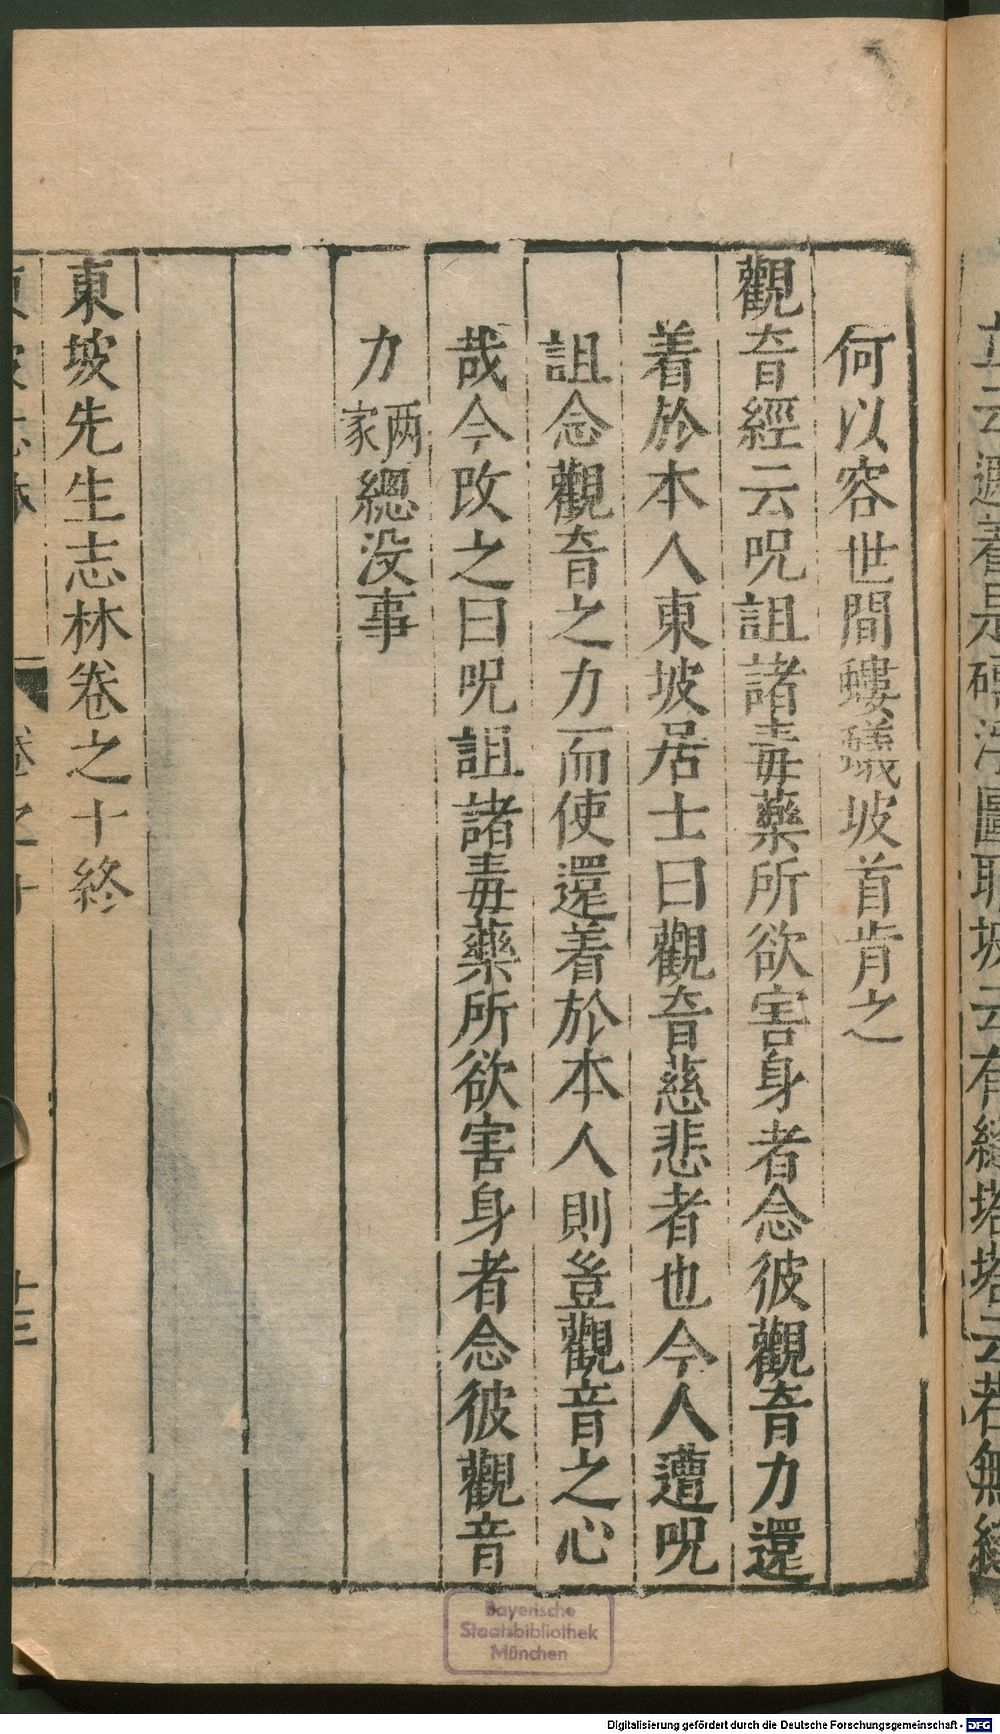 何以容世間螻蟻坡首肯之
觀音經云呪詛諸毒藥所欲害身者念彼觀音力還
着於本人東坡居士曰觀音慈悲者也今人遭呪
詛念觀音之力而使還着於本人則豈觀音之心
哉今改之曰呪詛諸毒藥所欲害身者念彼觀音
力两家總没事
東坡先生志林卷之十終
卷之十
十三
Bayerische
Staatsbibliothek
München
Digitalisierung gefördert durch die Deutsche Forschungsgemeinschaft - DFG